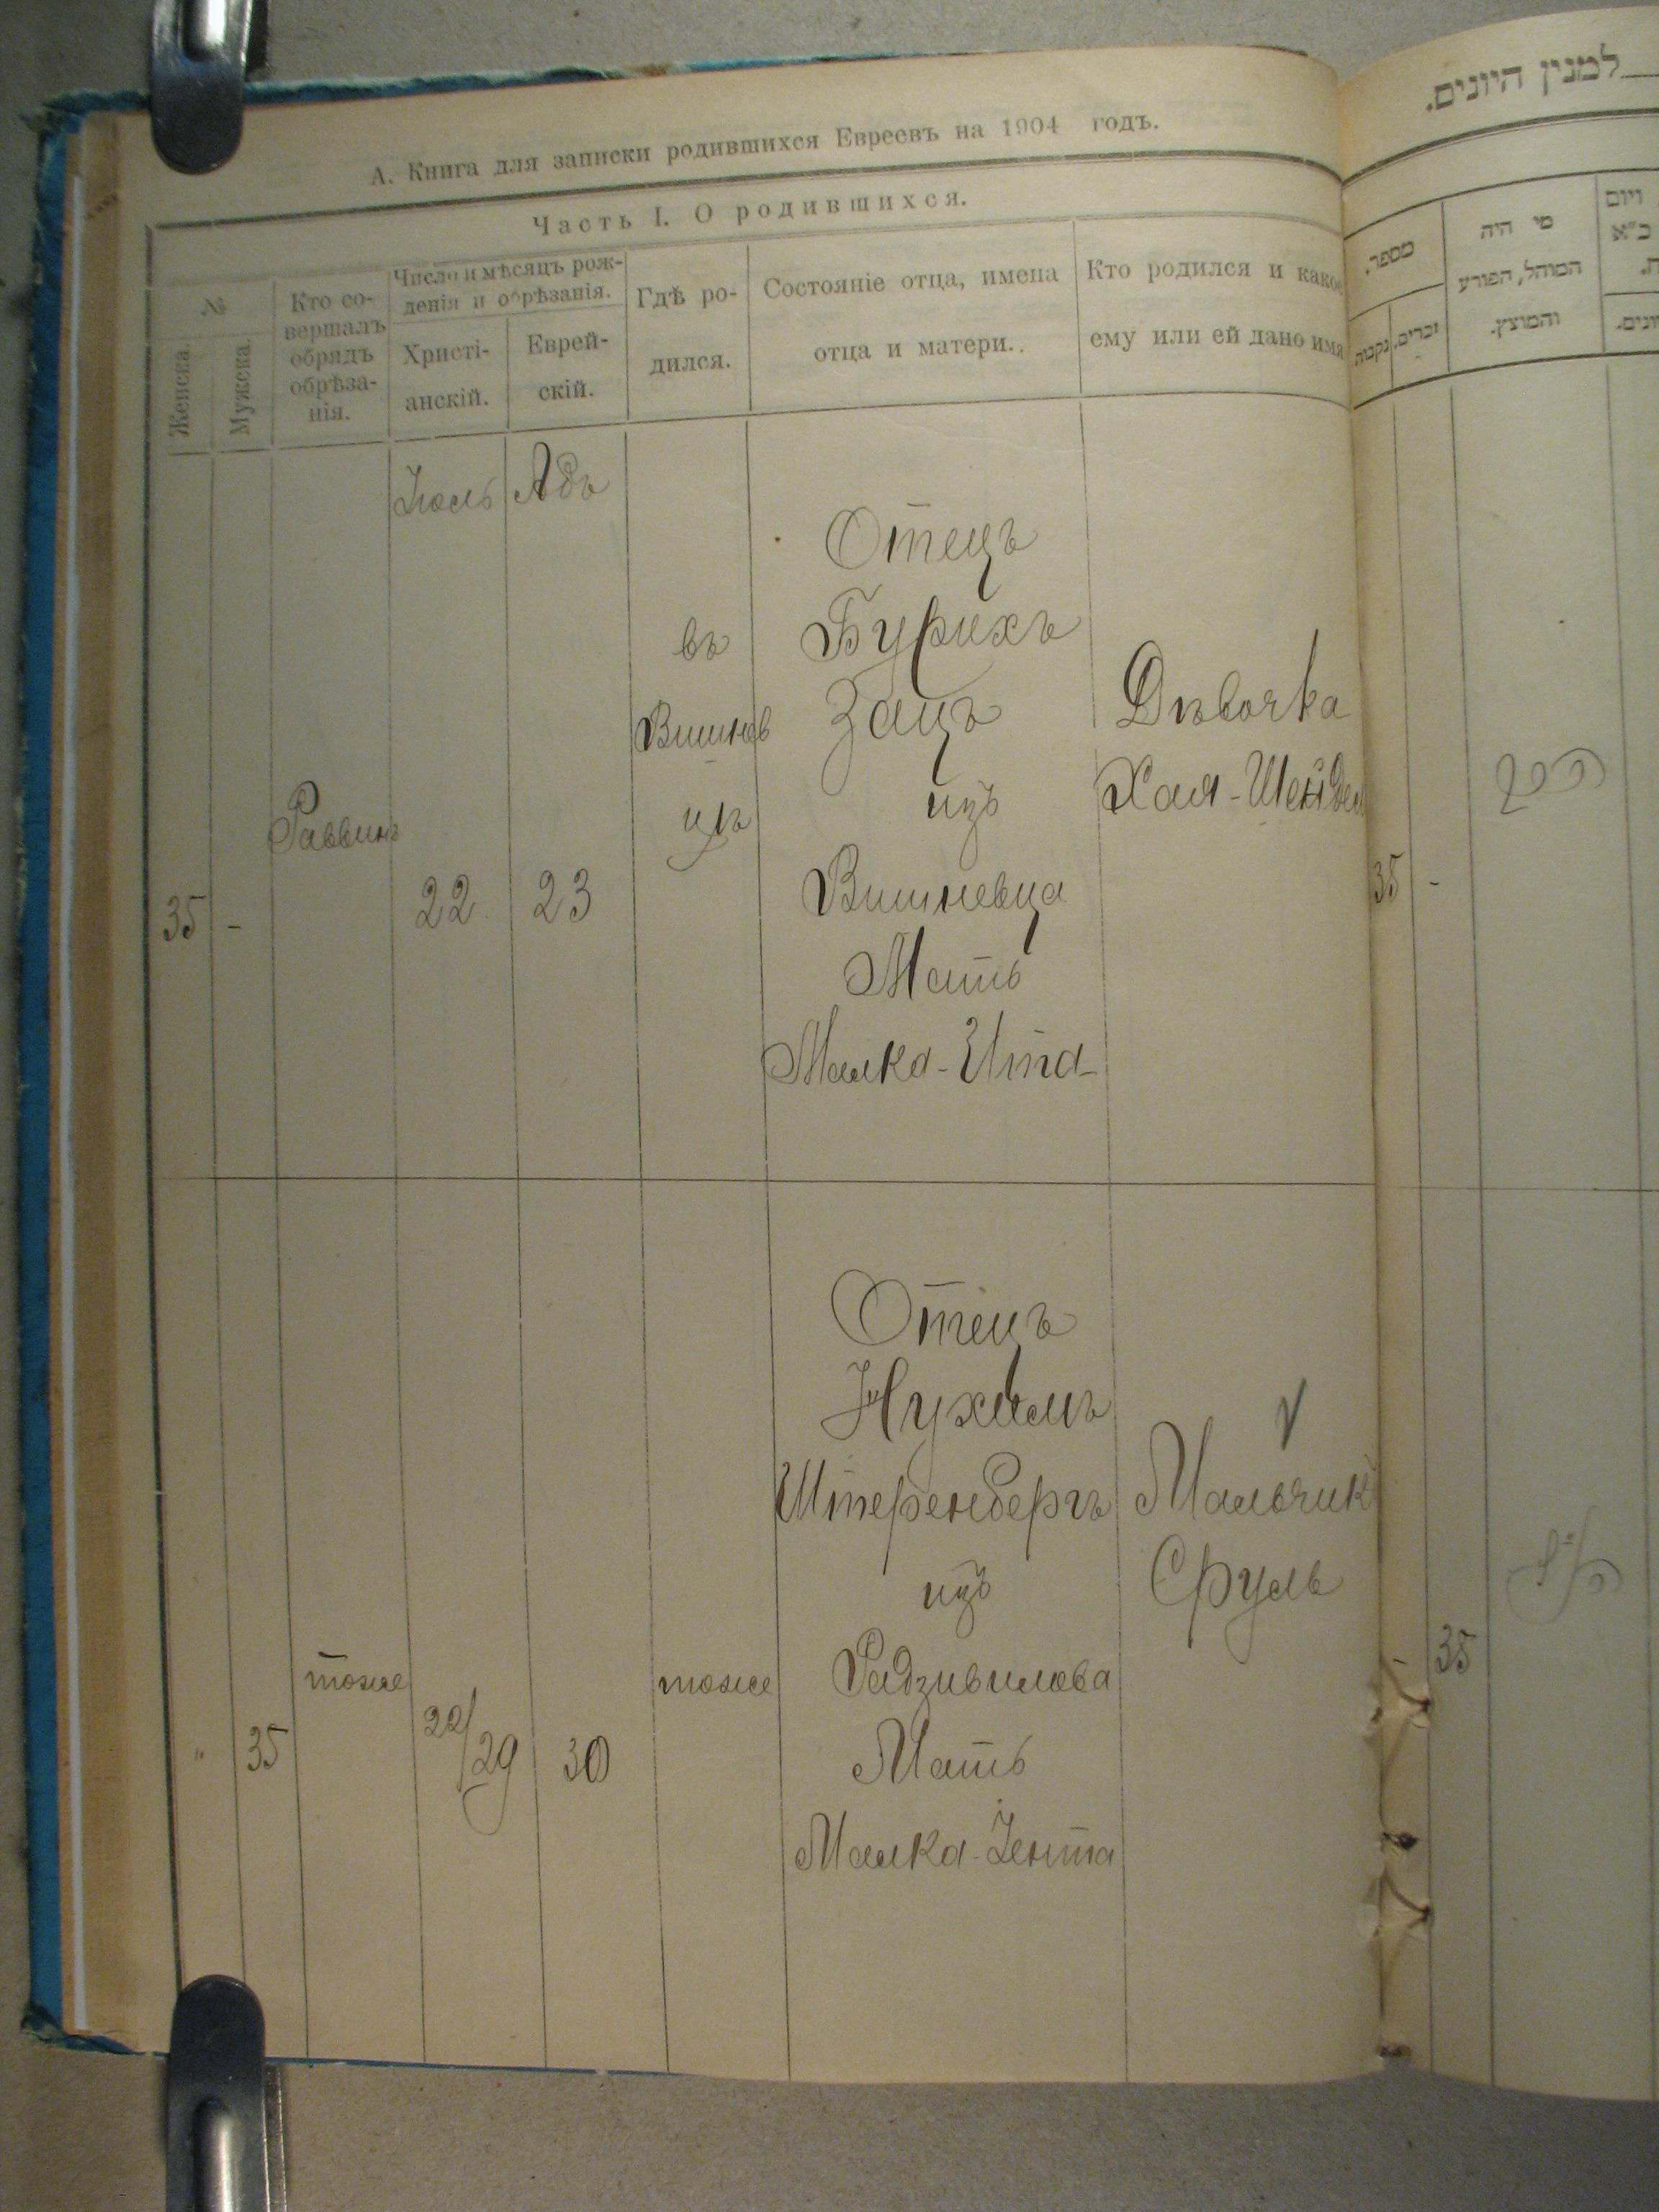 А. Книга для записки родившихся Евреевъ на 1904 годъ.
Часть I. О родившихся.
№
Женска.
Мужска.
Кто со-
вершалъ
обрядъ
обрѣза-
нія.
Число и мѣсяцъ рож-
денія и обрѣзанія.
Христі-
анскій.
Еврей-
скій.
Гдѣ ро-
дился.
Состояніе отца, имена
отца и матери.
Кто родился и какое
ему или ей дано имя
Іюль
Абъ
35
-
Раввинъ
22
23
въ
Вишнев
цѣ
Отецъ
Бурихъ
Зацъ
изъ
Вишневца
Мать
Малка-Ита
Дѣвочка
Хая-Шейдел
"
35
тоже
22/29
30
тоже
Отецъ
Нухимъ
Штеренбергъ
изъ
Радзивилова
Мать
Малка-Іента
Мальчикъ
Сруль
למנין היונים.
מספר.
זכרים.
נקבות
מי היה
המוהל, הפורע
והמוצץ.
ויום
כ״א
35
-
-
35